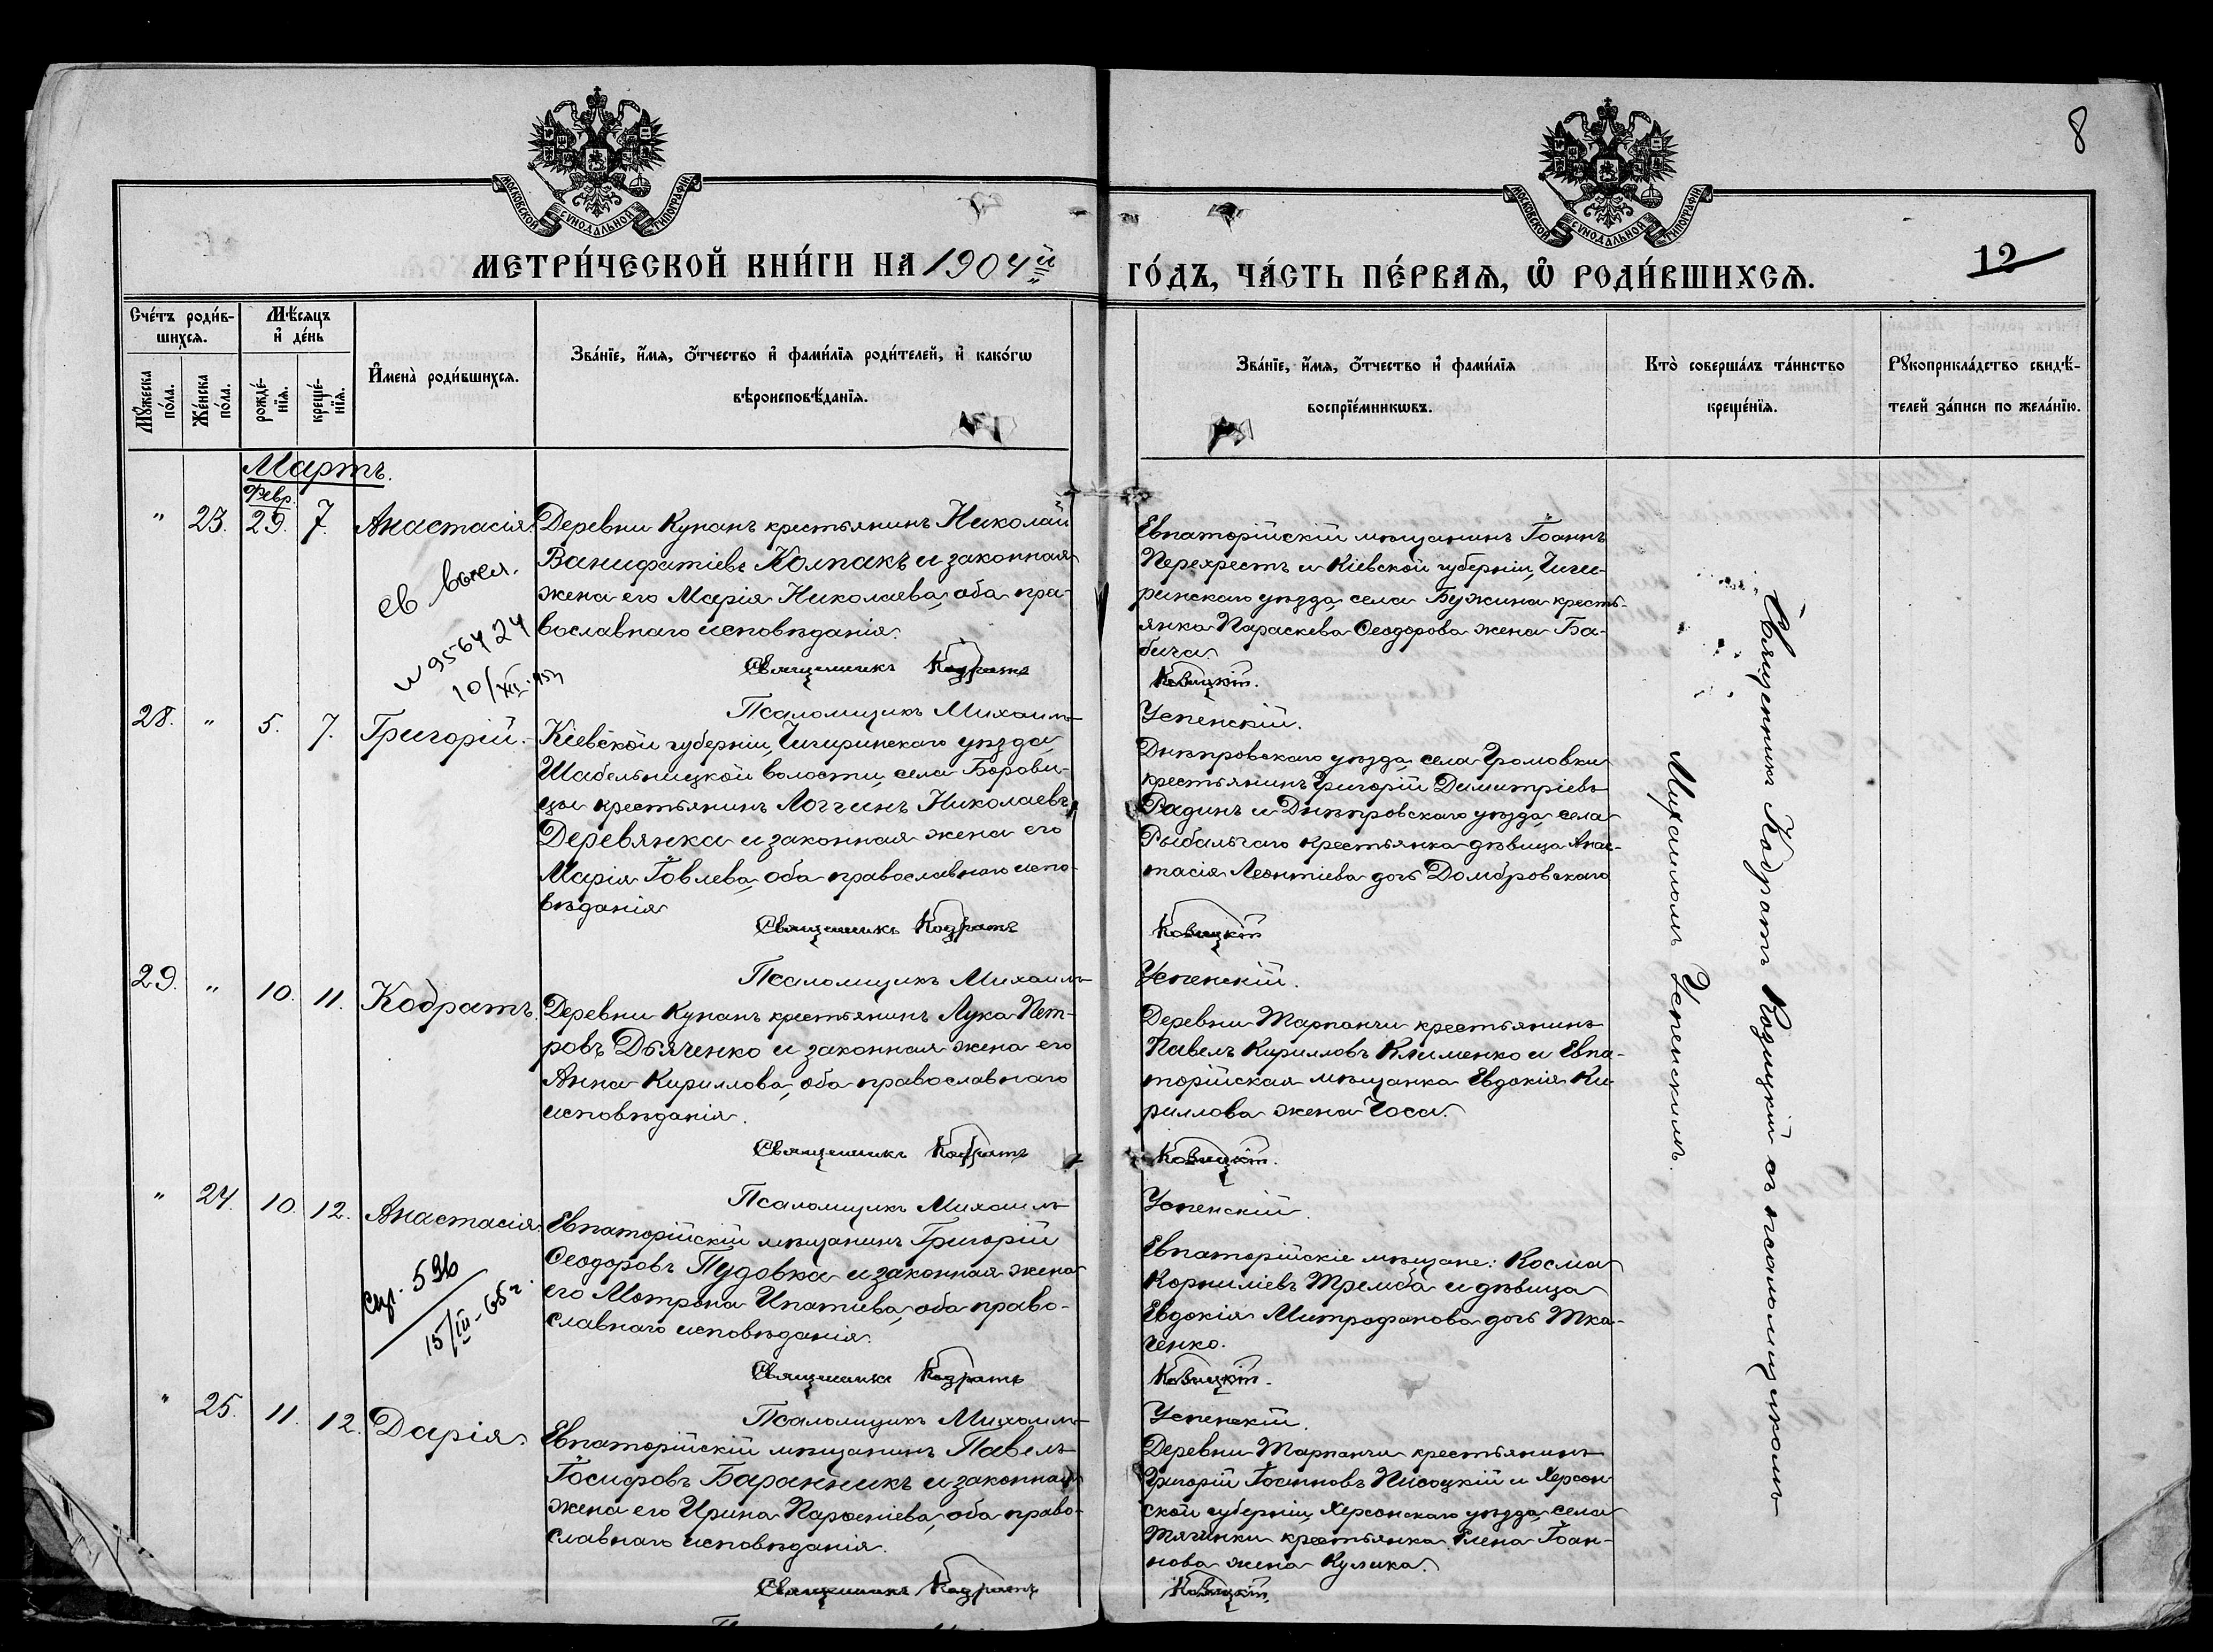 8
МОСКОВСКОЙ СѴНОДАЛЬНОЙ ТИПОГРАФІИ
МОСКОВСКОЙ СѴНОДАЛЬНОЙ ТИПОГРАФІИ
МЕТРИ́ЧЕСКОЙ КНИ́ГИ НА 1904й
ГО́ДЪ, ЧА́СТЬ ПЕ́РВАѦ, Ѡ РОДИ́ВШИХСѦ.
12
Сче́тъ роди́в-
шихсѧ.
Мѣ́сѧцъ
и҆ де́нь
Мꙋ́жеска
по́ла.
Же́нска
по́ла.
рожде́-
нїѧ.
креще́-
нїѧ.
И҆мена̀ роди́вшихсѧ.
Зва́нїе, и҆́мѧ, ѻ҆́тчество и҆ фами́лїѧ роди́телей, и҆ како́гѡ
вѣроисповѣ́данїѧ.
Зва́нїе, и҆́мѧ, ѻ҆́тчество и҆ фами́лїѧ
воспрїе́мникѡвъ.
Кто̀ соверша́лъ та́инство
креще́нїѧ.
Рꙋкоприкла́дство свидѣ́-
телей за́писи по жела́нїю.
Мартъ.
Февр.
" 23. 29. 7. Анастасія.
Деревни Кунанъ крестьянинъ Николай
Ванифатіевъ Колпакъ и законная
жена его Марія Николаева, оба пра-
вославнаго исповѣданія.
Священникъ Кодратъ
Псаломщикъ Михаилъ
Евпаторійскій мѣщанинъ Іоаннъ
Перехрестъ и Кіевской губерніи, Чиги-
ринскаго уѣзда, села Бужина кресть-
янка Параскева Ѳеодорова жена Ба-
бича.
Козицкій.
Успенскій.
10/XII
28. " 5. 7. Григорій.
Кіевской губерніи, Чигиринскаго уѣзда,
Шабельницкой волости, села Борови-
цы крестьянинъ Логгинъ Николаевъ
Деревянка и законная жена его
Марія Іовлева, оба православнаго испо-
вѣданія
Священникъ Кодратъ
Псаломщикъ Михаилъ
Днѣпровскаго уѣзда, села Громовки
крестьянинъ Григорій Димитріевъ
Радинъ и Днѣпровскаго уѣзда, села
Рыбальчаго крестьянка дѣвица Анас-
тасія Леонтіева дочь Домбровскаго
Козицкій
Успенскій.
29. " 10. 11. Кодратъ.
Деревни Кунанъ крестьянинъ Лука Пет-
ровъ Дьяченко и законная жена его
Анна Кириллова, оба православнаго
исповѣданія.
Священникъ Кодратъ
Псаломщикъ Михаилъ
Деревни Тарпанчи крестьянинъ
Павелъ Кирилловъ Клименко и Евпа-
торійская мѣщанка Евдокія Ки-
риллова жена Чоса.
Козицкій.
Успенскій.
" 24. 10. 12. Анастасія.
15/III-65г.
Евпаторійскій мѣщанинъ Григорій
Ѳеодоровъ Пудовка и законная жена
его Мотрона Ипатіева, оба право-
славнаго исповѣданія.
Священникъ Кодратъ
Псаломщикъ Михаилъ
Евпаторійскіе мѣщане: Косма
Корниліевъ Трембa и дѣвица
Евдокія Митрофанова дочь Тка-
ченко.
Козицкій.
Успенскій.
" 25. 11. 12. Дарія.
Евпаторійскій мѣщанинъ Павелъ
Іосифовъ Баранникъ и законная
жена его Ирина Парѳеніева, оба право-
славнаго исповѣданія.
Священникъ Кодратъ
Деревни Тарпанчи крестьянинъ
Григорій Іоанновъ Писоцкій и Херсон-
ской губерніи, Херсонскаго уѣзда, села
Тягинки крестьянка Елена Іоан-
нова жена Кулика.
Козицкій.
Священникъ Кодратъ Козицкій съ псаломщикомъ
Михаиломъ Успенскимъ.